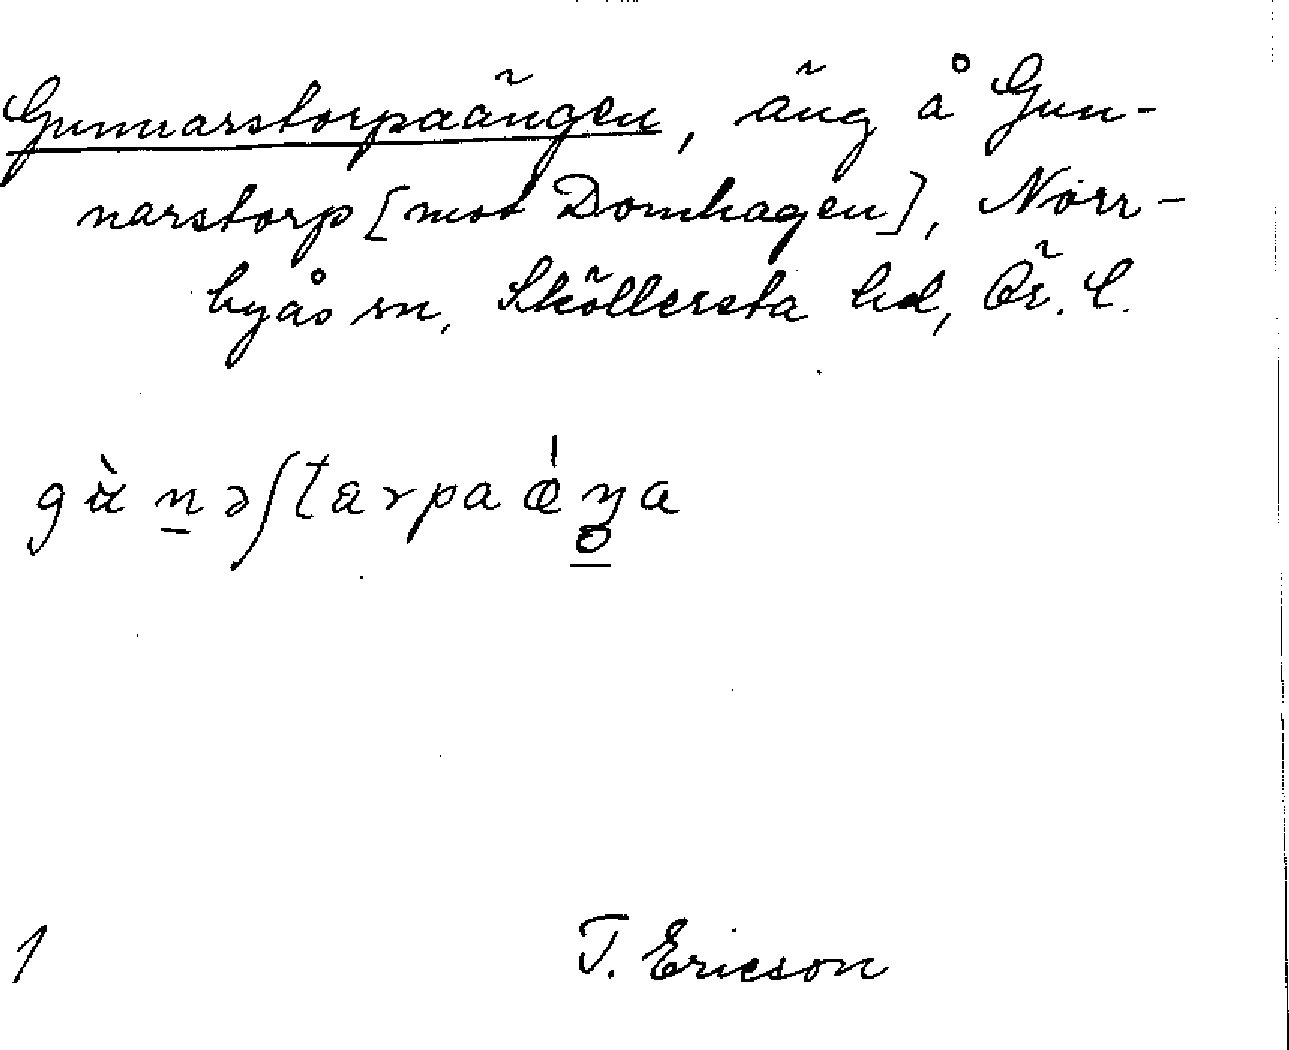 Gunnarstorpaängen, äng å Gun-
narstorp [mot Domhagen], Norr-
byås sn, Sköllersta hd, Ör. l.
T. Ericson
1